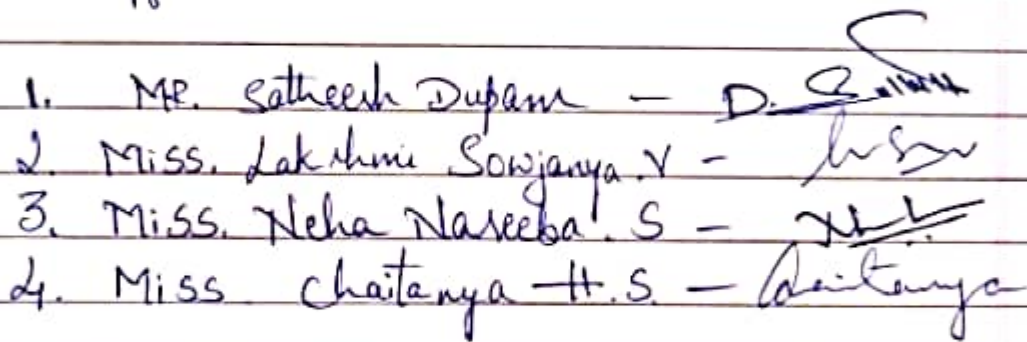 1. MR. Satheesh Dupam -
2. Miss. Lakshmi Sowjanya.V -
3. Miss. Neha Naseeba. S -
4. Miss Chaitanya H.S. - Chaitanya